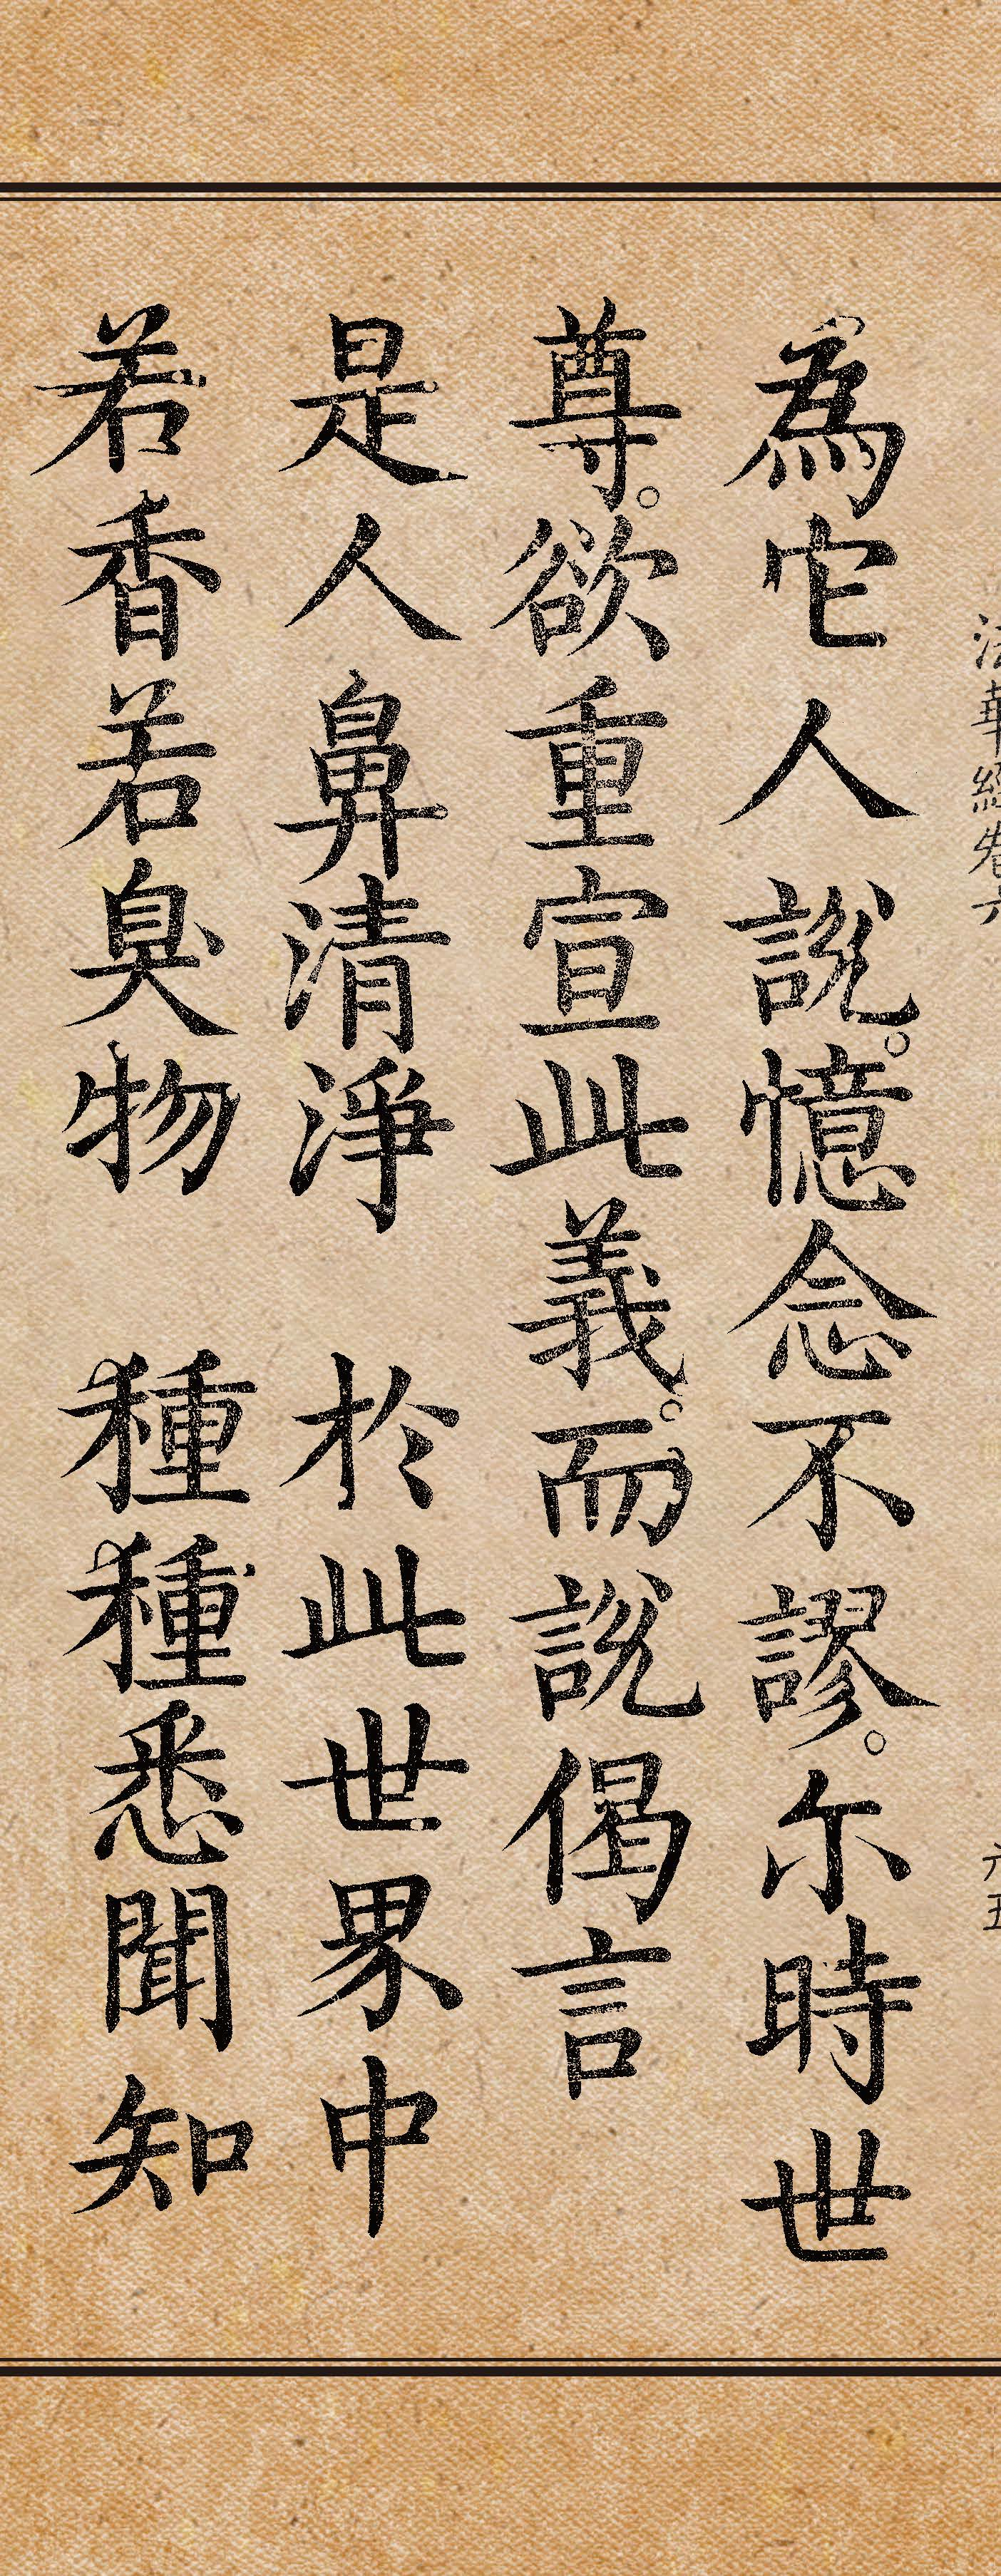 法華經卷六 六五
為它人說。憶念不謬。尒時世
尊。欲重宣此義。而說偈言
是人鼻清淨 於此世界中
若香若臭物 種種悉聞知